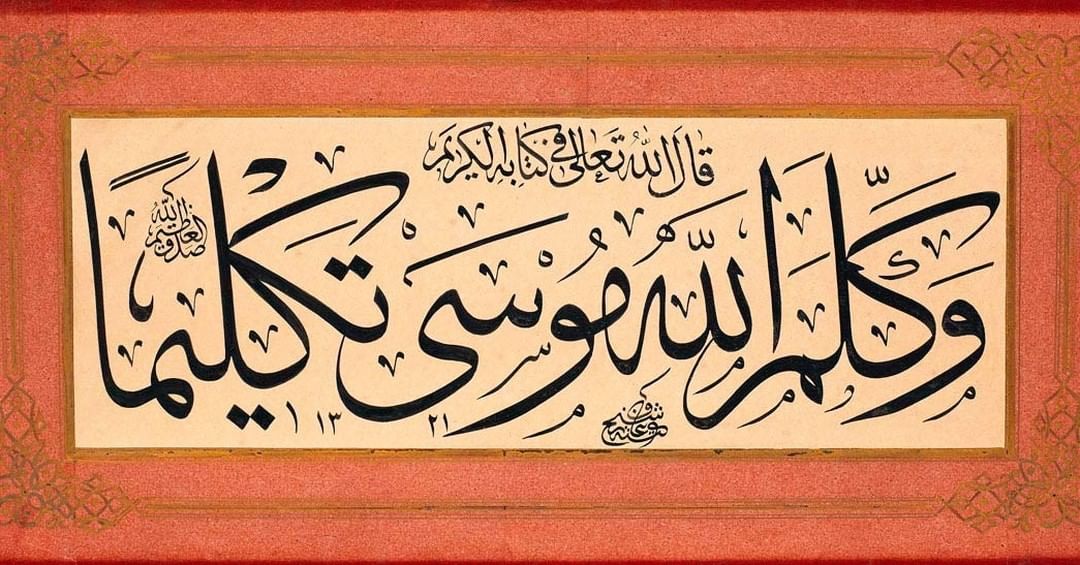 قال الله تعالى في كتابه الكريم
وَكَلَّمَ اللهُ مُوسَى تَكْلِيمًا
صدق الله العظيم
١٣٢١